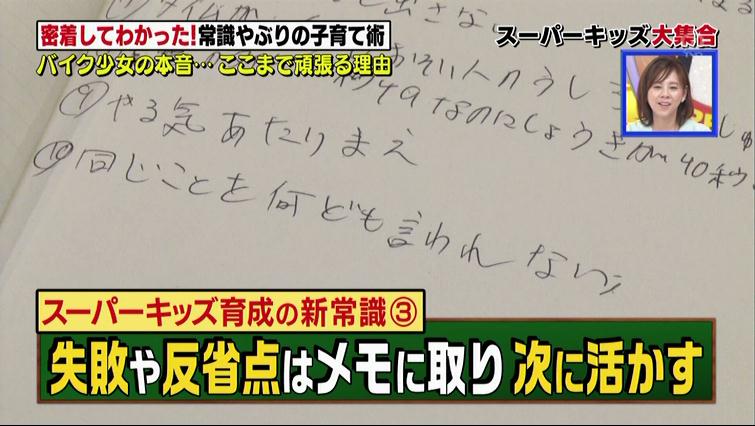 密着してわかった!常識やぶりの子育て術
バイク少女の本音…ここまで頑張る理由
スーパーキッズ大集合
⑨やる気あたりまえ
⑩同じことを何ども言われない
スーパーキッズ育成の新常識③
失敗や反省点はメモに取り 次に活かす